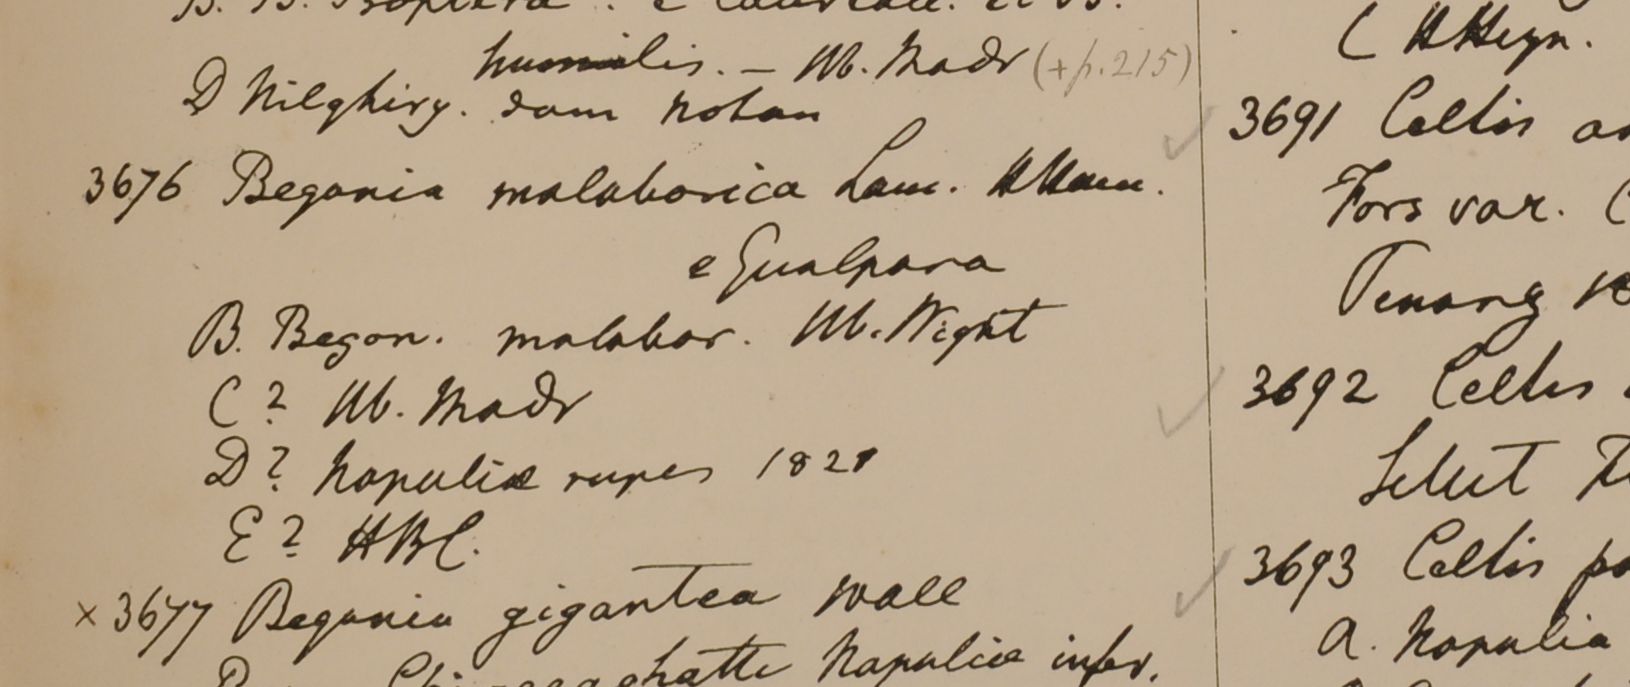 humilis. – Hb. Madr (+p.215)
D Nilghiry. dom Notan
3676 Begonia malabarica Lam. HHam.
e Gualpara
B. Begon. malabar. Hb. Wight
C? Hb. Madr
D? Napaliæ rupes 1821
E? HBC.
x 3677 Begonia gigantea Wall
Napaliæ infer.
C HHeyn.
3691 Celtis
Fors var. (
Penang
3692 Celtis
3693 Celtis
a. Napalia